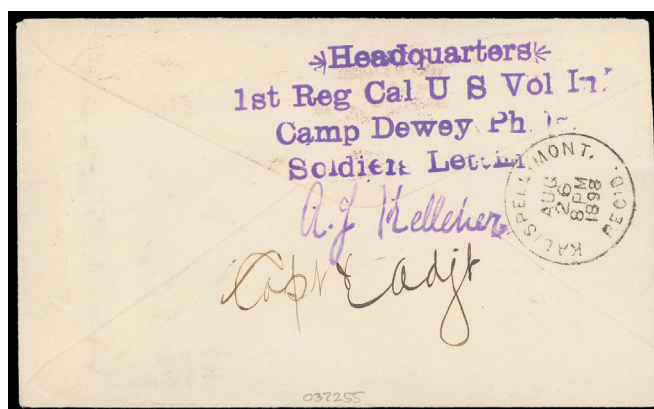 Headquarters
1st Reg Cal U S Vol Inf
Camp Dewey Ph. Is.
Soldiers Letter
A. J. Kelleher
Capt & Adjt
KALISPELL, MONT.
AUG
26
8 PM
1898
REC'D.
037255